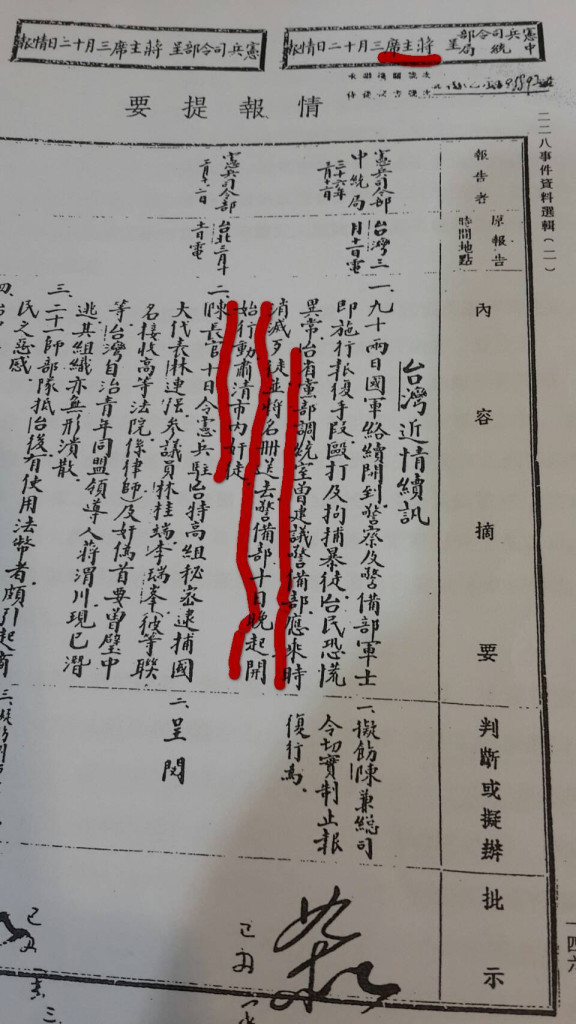 憲兵司令部
中統局
呈 蔣主席三月十二日情報
憲兵司令部呈 蔣主席三月十二日情報
情報提要
二二八事件資料選輯(二)
一四六
報告者
原報告時間地點
內容摘要
判斷或擬辦
批示
中統局
三十六年
憲兵司令部
台灣三月
十一日電
台灣近情續訊
一、九十兩日國軍絡續開到警察及警備部軍士
即施行報復手段毆打及拘捕暴徒台民恐慌
異常台省黨部調統室曾建議警備部應來時
消滅歹徒並將名冊送去警備部十日晚起開
始行動肅清市內奸徒
一、擬飭陳兼總司
令切實制止報
復行為
憲兵司令部
台北三月十
一日電
二、陳長官十日令憲兵駐台特高組秘密逮捕國
大代表林連強參議員林桂端李瑞峯彼等聯
名接收高等法院係律師及奸偽首要曾璧中
等台灣自治青年同盟領導人蔣渭川現已潛
逃其組織亦無形潰散
二、呈閱
三、二十一師部隊抵台後有使用法幣者頗引起商
民之惡感
四、
如擬